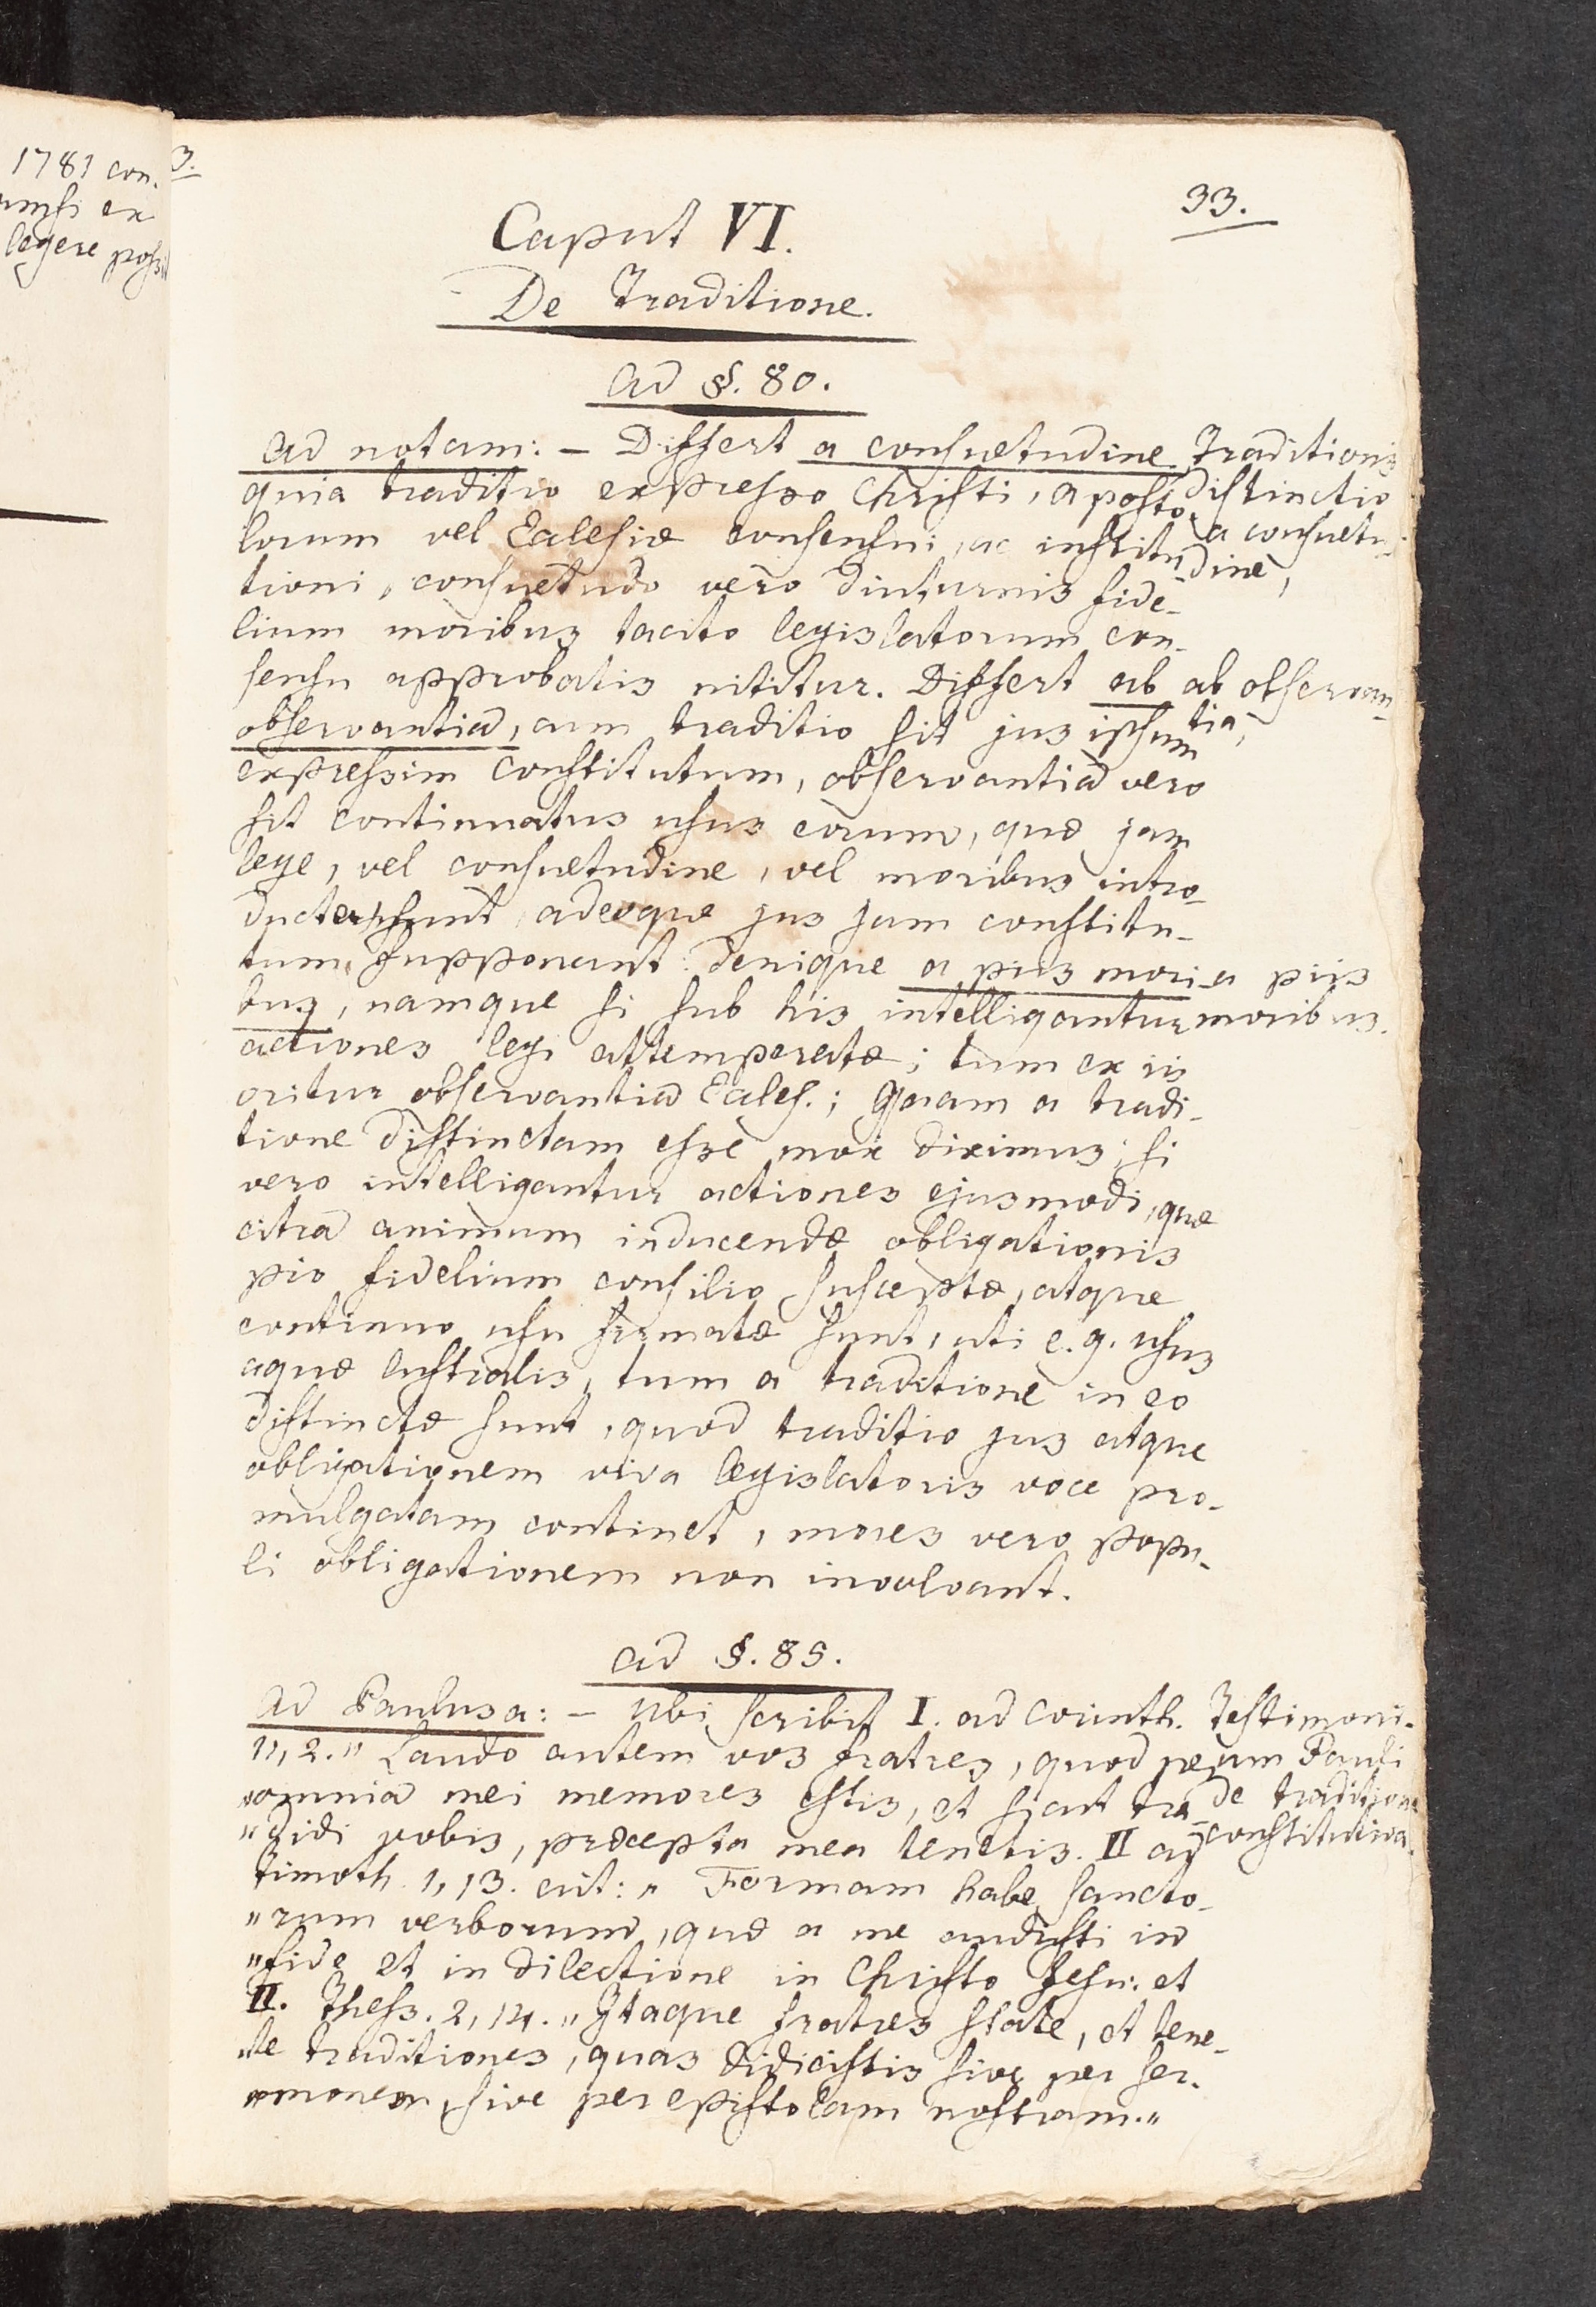 1781 con.
legere
3.
33.
Caput VI.
De Traditione.
ad §. 80.
ad notam: – Differt a consuetudine
quia traditio expresso Christi, aposto-
lorum vel Ecclesiæ consensui, ac institu-
tioni, consuetudo vero diuturnis fide-
lium moribus tacito legislatorum con-
sensu approbatis nititur. Differt ab
observantia, cum traditio sit jus ipsum
expressim constitutum, observantia vero
sit continuatus usus eorum, quæ jam
lege, vel consuetudine, vel moribus intro-
ducta sunt, adeoque jus jam constitu-
tum supponant: denique a piis mori-
bus, namque si sub his intelligantur
actiones legi attemperatæ; tum ex iis
oritur observantia Eccles.; quam a tradi-
tione distinctam esse mox diximus; si
vero intelligantur actiones ejusmodi, quæ
citra animum inducendæ obligationis
pio fidelium consilio susceptæ, atque
continuo usu firmatæ sunt, uti e. g. usus
aquæ lustralis, tum a traditione in eo
distinctæ sunt, quod traditio jus atque
obligationem viva legislatoris voce pro-
mulgatam continet, mores vero popu-
li obligationem non involvant.
Traditionis
distinctio
a consuetu-
dine,
ab observan-
tia,
a piis
moribus.
ad §. 85.
ad Paulus a: – Ubi scribit I. ad Corinth.
11, 2. „ Laudo autem vos fratres, quod per
„omnia mei memores estis, et sicut tra-
„didi vobis, præcepta mea tenetis. II ad
Timoth. 1, 13. ait: „ Formam habe sancto-
„rum verborum, quæ a me audisti in
„fide et in dilectione in Christo Jesu: et
II. Thess. 2, 14. „ Itaque fratres state, et tene-
„te traditiones, quas didicistis sive per ser-
„monem, sive per epistolam nostram.„
Testimoni-
um Pauli
de traditione
constitutiva.